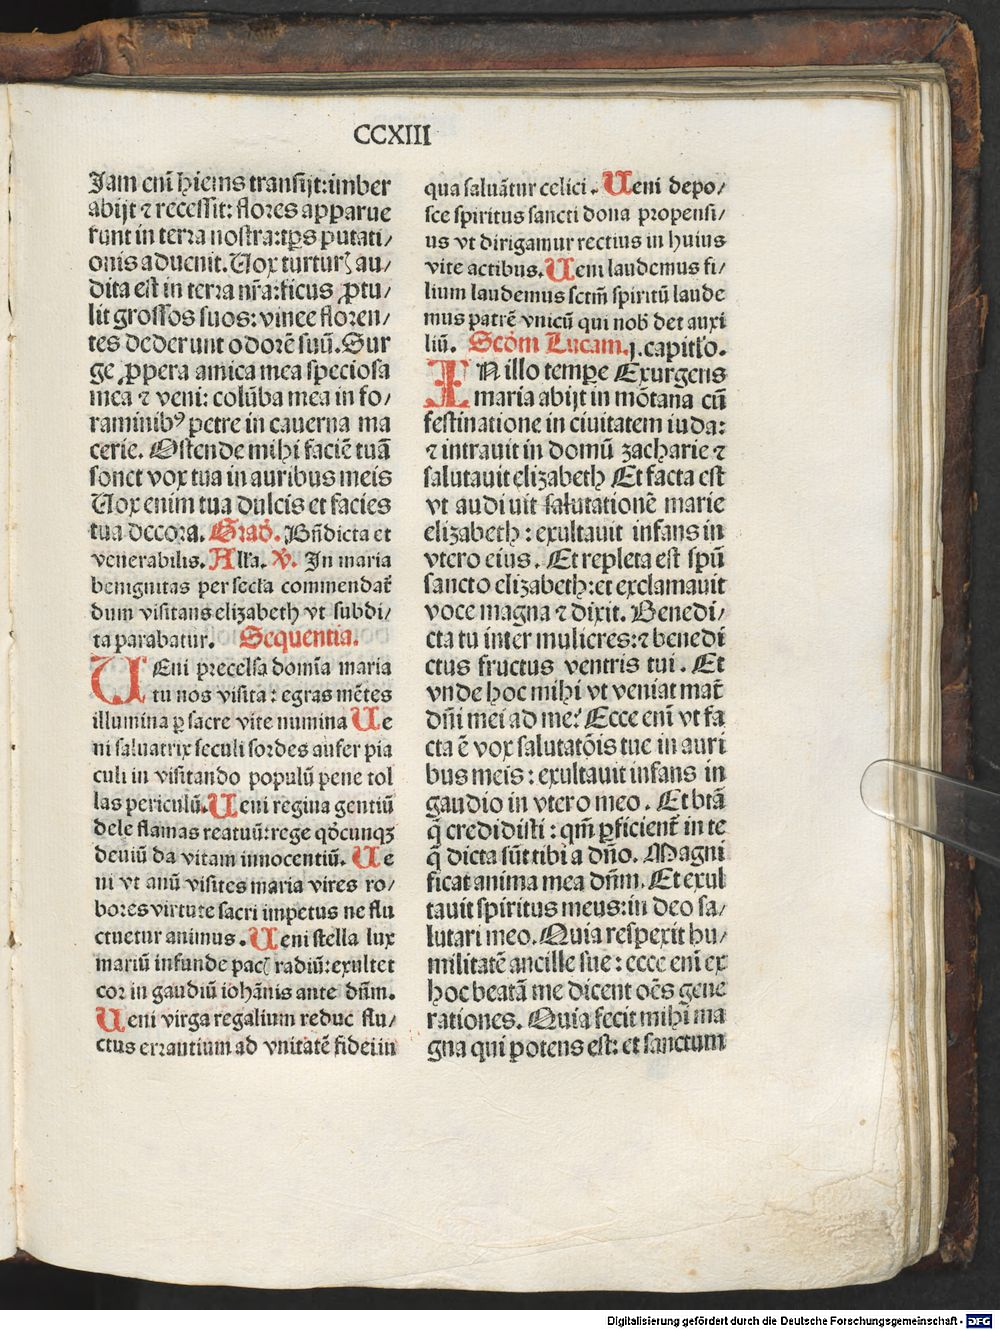 CCXIII
Jam eni̅ hiems transijt:imber
abijt ⁊ recessit: flores apparue
runt in terra nostra:tp̅s putati/
onis aduenit. Vox turturꝭ au/
dita est in terra nr̅a:ficus ꝓtu/
lit grossos suos: vinee floren/
tes dederunt odore̅ suu̅. Sur
ge ꝓpera amica mea speciosa
mea ⁊ veni: colu̅ba mea in fo/
raminibꝰ petre in cauerna ma
cerie. Ostende mihi facie̅ tua̅
sonet vox tua in auribus meis
Vox enim tua dulcis et facies
tua decora. Grad̅. Bn̅dicta et
venerabilis. Alła. V. In maria
benignitas per secła commendat᷑
dum visitans elizabeth vt subdi/
ta parabatur. Sequentia.
VEni precelsa domi̅a maria
tu nos visita: egras me̅tes
illumina ꝑ sacre vite numina Ve
ni saluatrix seculi sordes aufer pia
culi in visitando populu̅ pene tol
las periculu̅. Veni regina gentiu̅
dele flamas reatuu̅:rege qd̅cunqꝫ
deuiu̅ da vitam innocentiu̅. Ve
ni vt anu̅ visites maria vires ro/
bores virtute sacri impetus ne flu
ctuetur animus. Veni stella lux
mariu̅ infunde pacꝭ radiu̅:exultet
cor in gaudiu̅ ioha̅nis ante dn̅m.
Veni virga regalium reduc flu/
ctus errantium ad vnitate̅ fidei in
qua salua̅tur celici. Veni depo/
sce spiritus sancti dona propensi/
us vt dirigamur rectius in huius
vite actibus. Veni laudemus fi/
lium laudemus sctm̅ spiritu̅ laude
mus patre̅ vnicu̅ qui nob̅ det auxi
liu̅. Scd̅m Lucam. j. capitło.
IN illo tempe̅ Exurgens
maria abijt in mo̅tana cu̅
festinatione in ciuitatem iuda:
⁊ intrauit in domu̅ zacharie ⁊
salutauit elizabeth Et facta est
vt audiuit salutatione̅ marie
elizabeth: exultauit infans in
vtero eius. Et repleta est spu̅
sancto elizabeth:et exclamauit
voce magna ⁊ dixit. Benedi/
cta tu inter mulieres:⁊ benedi̅
ctus fructus ventris tui. Et
vnde hoc mihi vt veniat mat᷑
dn̅i mei ad me? Ecce eni̅ vt fa
cta e̅ vox salutato̅is tue in auri
bus meis: exultauit infans in
gaudio in vtero meo. Et bt̅a
q̅ credidisti: qm̅ ꝑficient᷑ in te
q̅ dicta su̅t tibi a dn̅o. Magni
ficat anima mea dn̅m. Et exul
tauit spiritus meus:in deo sa/
lutari meo. Quia respexit hu/
militate̅ ancille sue: ecce eni̅ ex
hoc beata̅ me dicent oe̅s gene
rationes. Quia fecit mihi ma
gna qui potens est: et sanctum
Digitalisierung gefördert durch die Deutsche Forschungsgemeinschaft - DFG